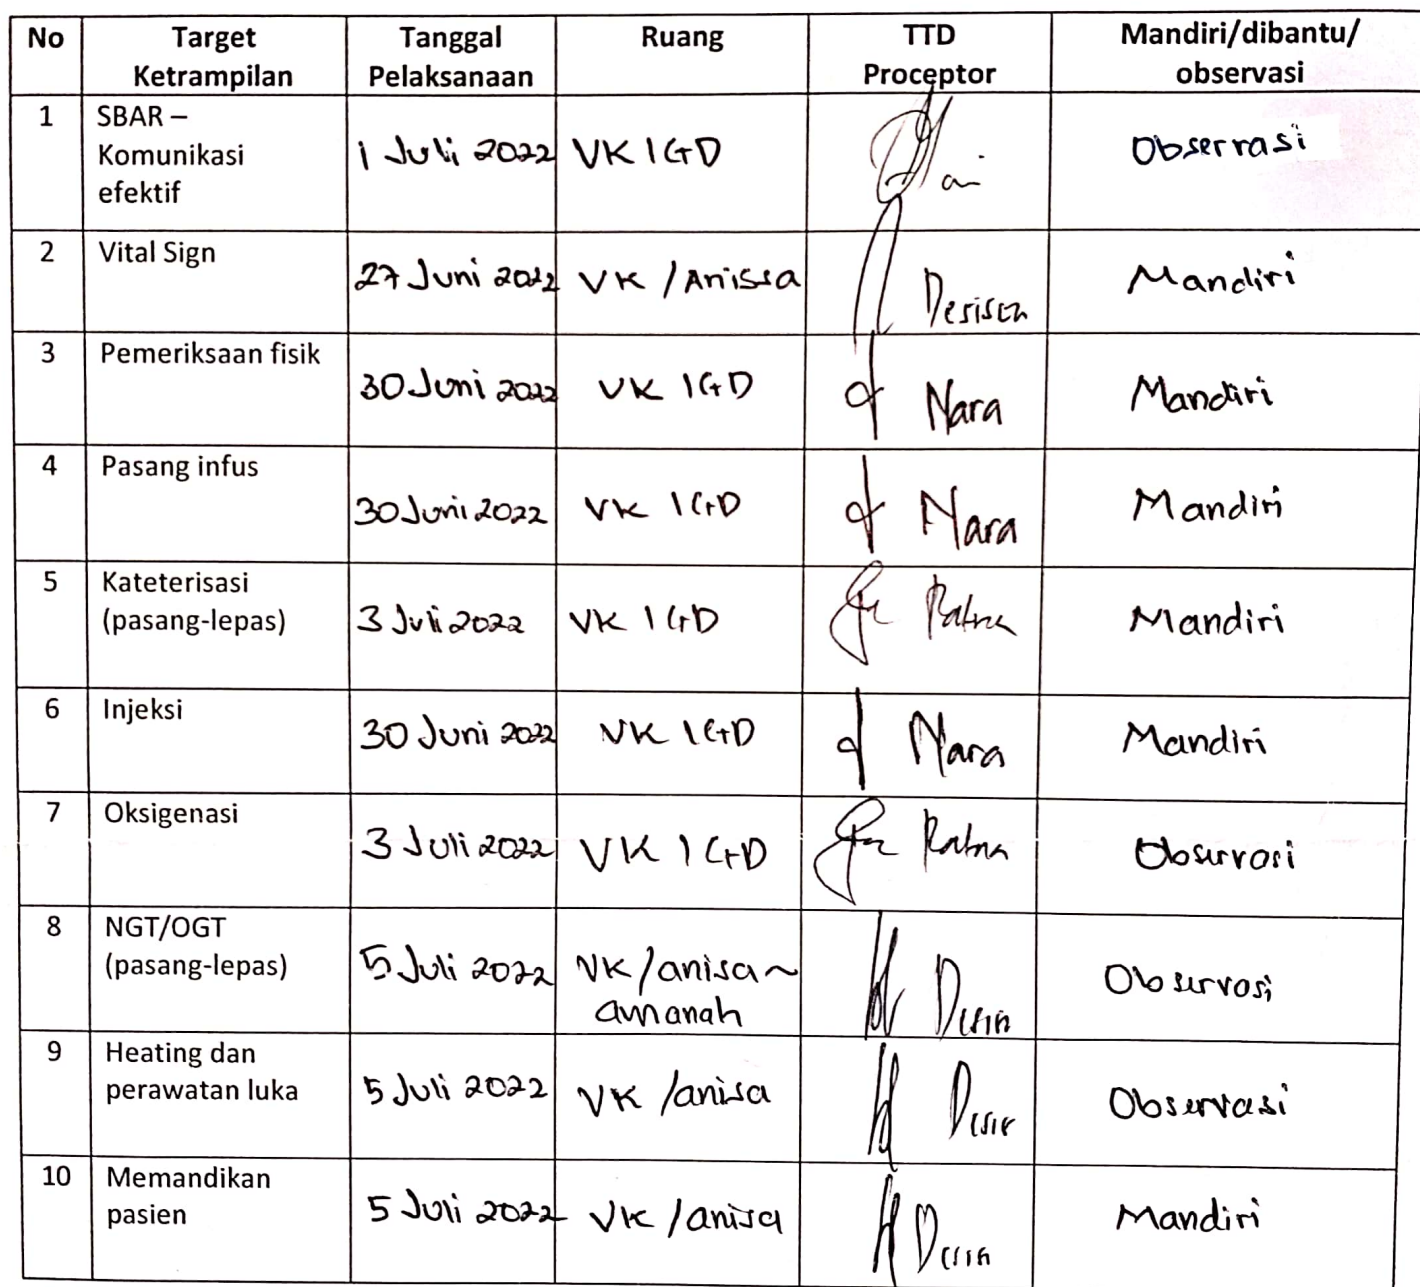 No Target Ketrampilan Tanggal Pelaksanaan Ruang TTD Proceptor Mandiri/dibantu/ observasi
1 SBAR –
Komunikasi
efektif
1 Juli 2022 VK IGD Observasi
2 Vital Sign
27 Juni 2022 VK / Anissa Mandiri
3 Pemeriksaan fisik
30 Juni 2022 VK IGD Nara Mandiri
4 Pasang infus
30 Juni 2022 VK IGD Nara Mandiri
5 Kateterisasi
(pasang-lepas)
3 Juli 2022 VK IGD Ratna Mandiri
6 Injeksi
30 Juni 2022 VK IGD Nara Mandiri
7 Oksigenasi
3 Juli 2022 VK IGD Ratna Observasi
8 NGT/OGT
(pasang-lepas)
5 Juli 2022 VK/anisa~
amanah
Observasi
9 Heating dan
perawatan luka
5 Juli 2022 VK /anisa Observasi
10 Memandikan
pasien
5 Juli 2022 VK /anisa Mandiri